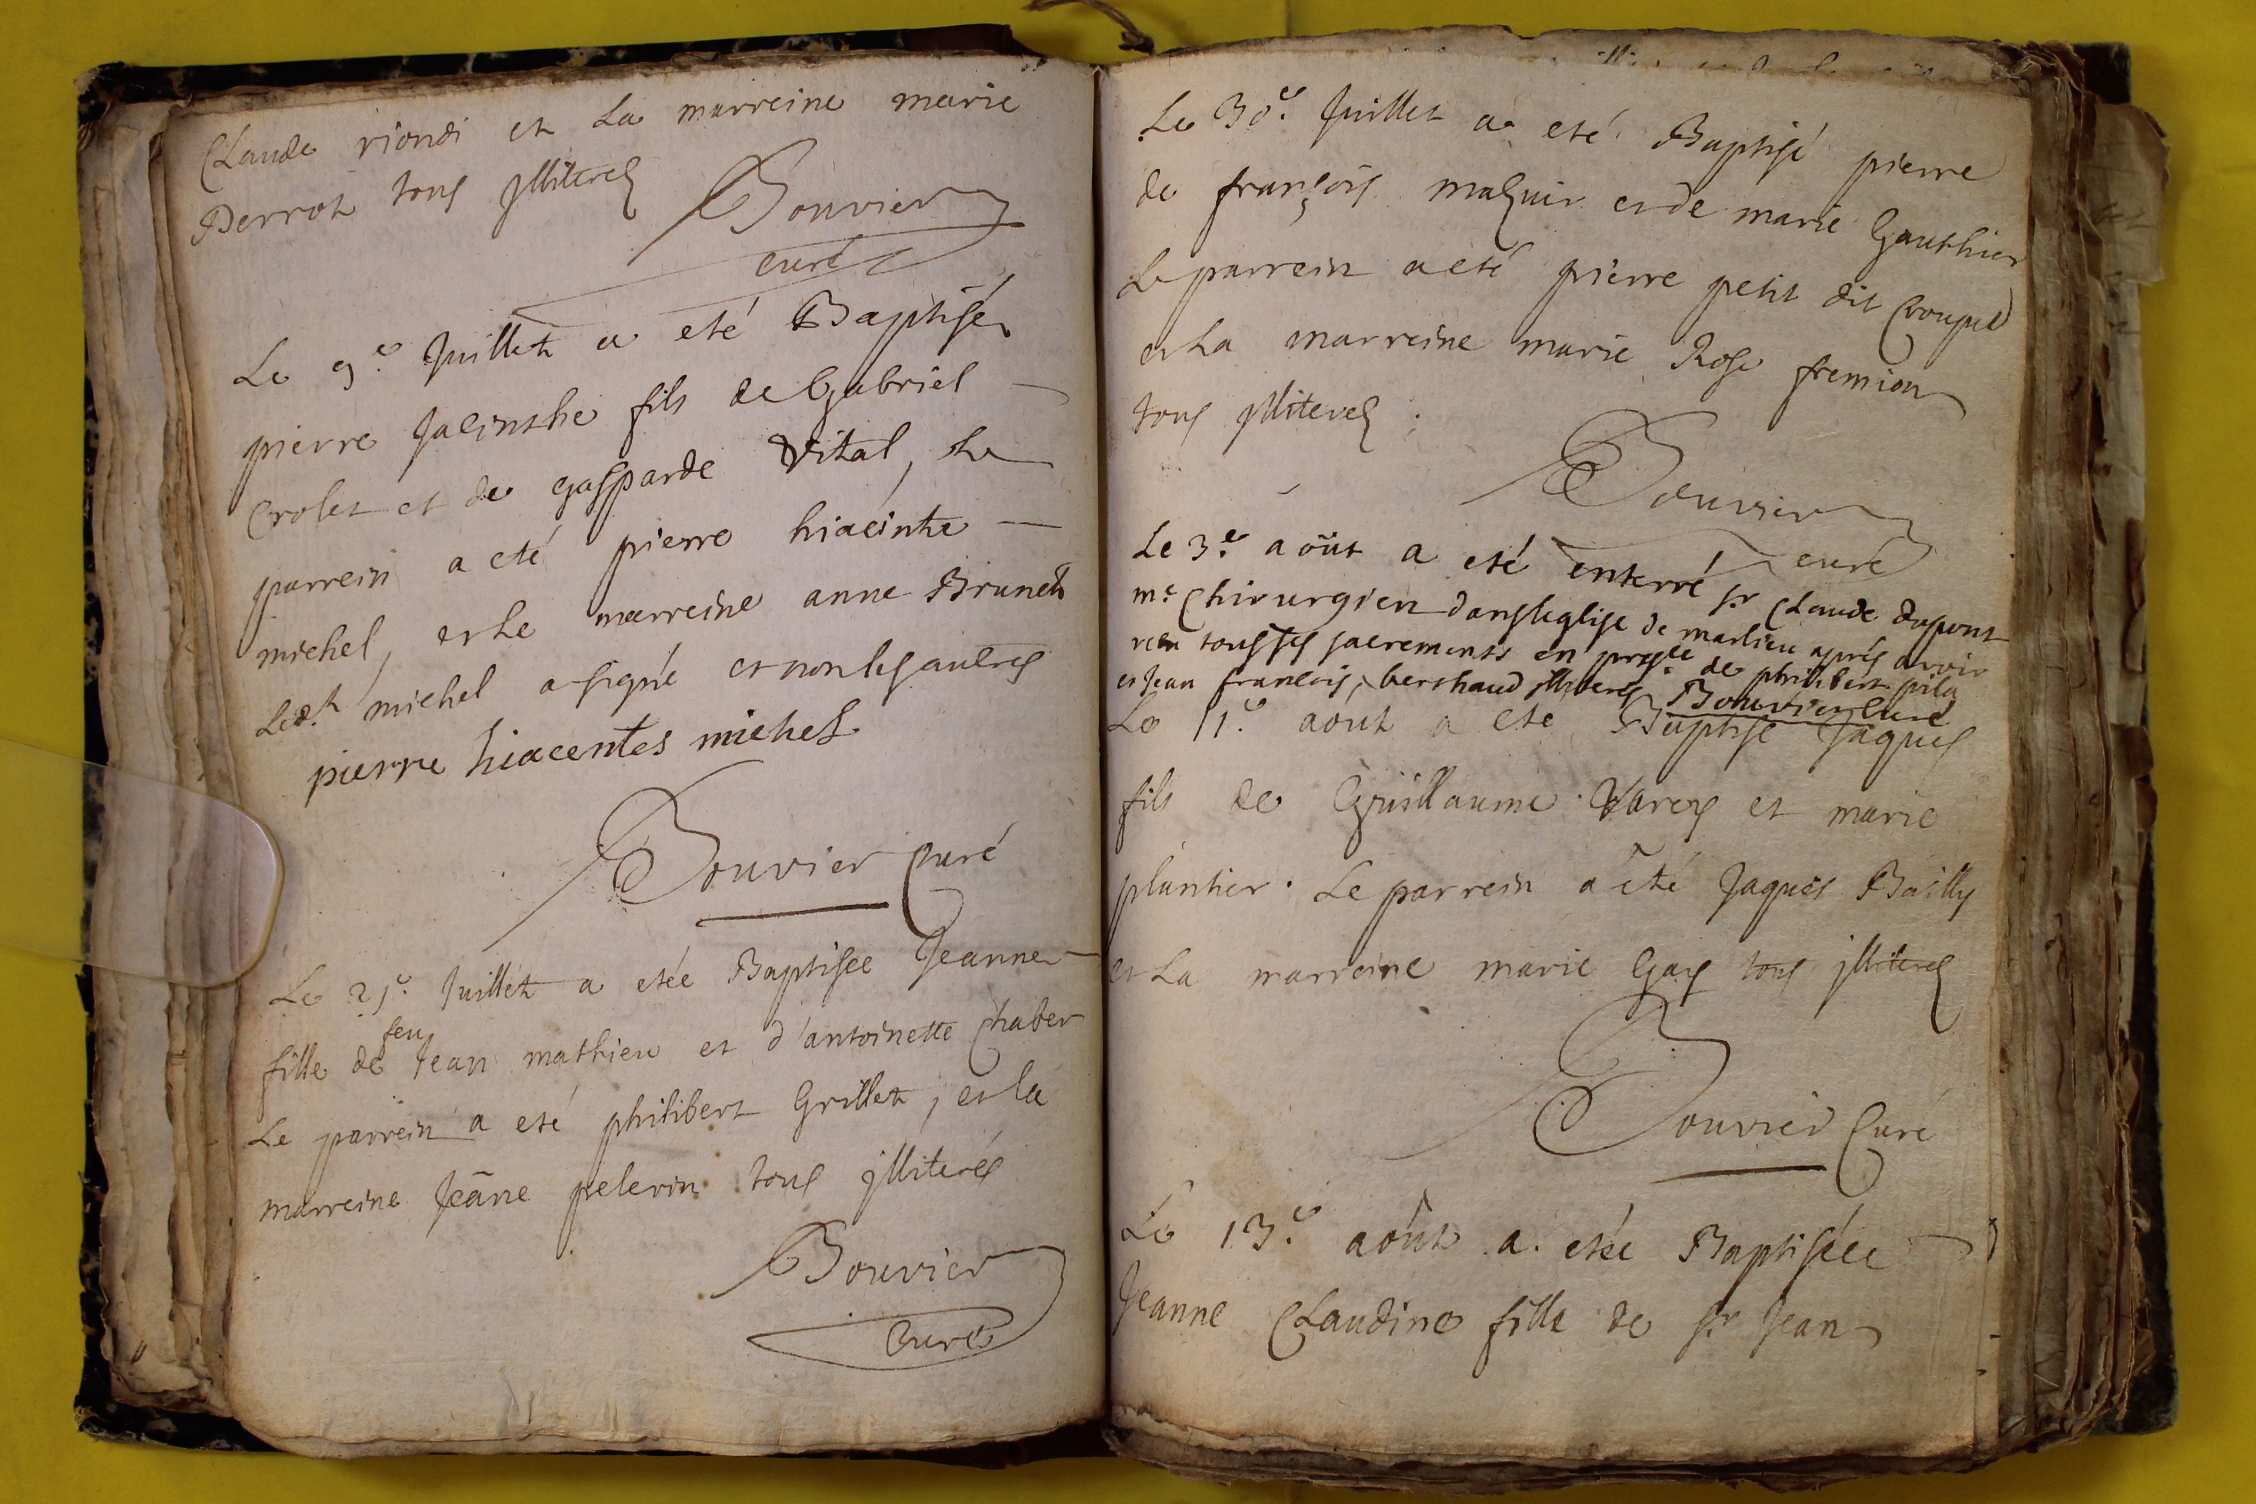 Claude riondi et La marreine marie
Perrot tous jlliterés
Bouvier
curé
Le 9.e Juillet a eté Baptisé
pierre Jacinthe fils de Gabriel
Crolet et de gasparde Vital, Le
parrein a eté pierre hiacinte
michel, et Le marreine anne Brunet
Led.t michel a signé et non les autres
pierre hiacentes michel
Bouvier Curé
Le 21.e Juillet a etée Baptisée Jeanne
feu
fille de Jean mathieu et d'antoinette Chaber
Le parrein a eté philibert Grillet, et la
marreine Jeāne pelerin tous jlliterés
Bouvier
Curé
Le 30.e Juillet a eté Baptisé pierre
de françois et de marie Gauthier
Le parrein a eté pierre petit dit
et La marreine marie Rose fremion
tous jlliterés
Bouvier
curé
Le 3.e août a eté enterré sr Claude dupont
me Chirurgien dans leglise de marlieu après avoir
recu tous ses sacrements en de philibert pila
et Jean francois berthaud jlliterés Bouvier Curé
Le 11.e août a eté Baptisé Jaques
fils de Guillaume Varey et marie
plantier. Le parrein a eté Jaques Bailly
et La marreine marie Gay tous jlliterés
Bouvier Curé
Le 13.e août a. etée Baptisée
Jeanne Claudine fille de sr Jean